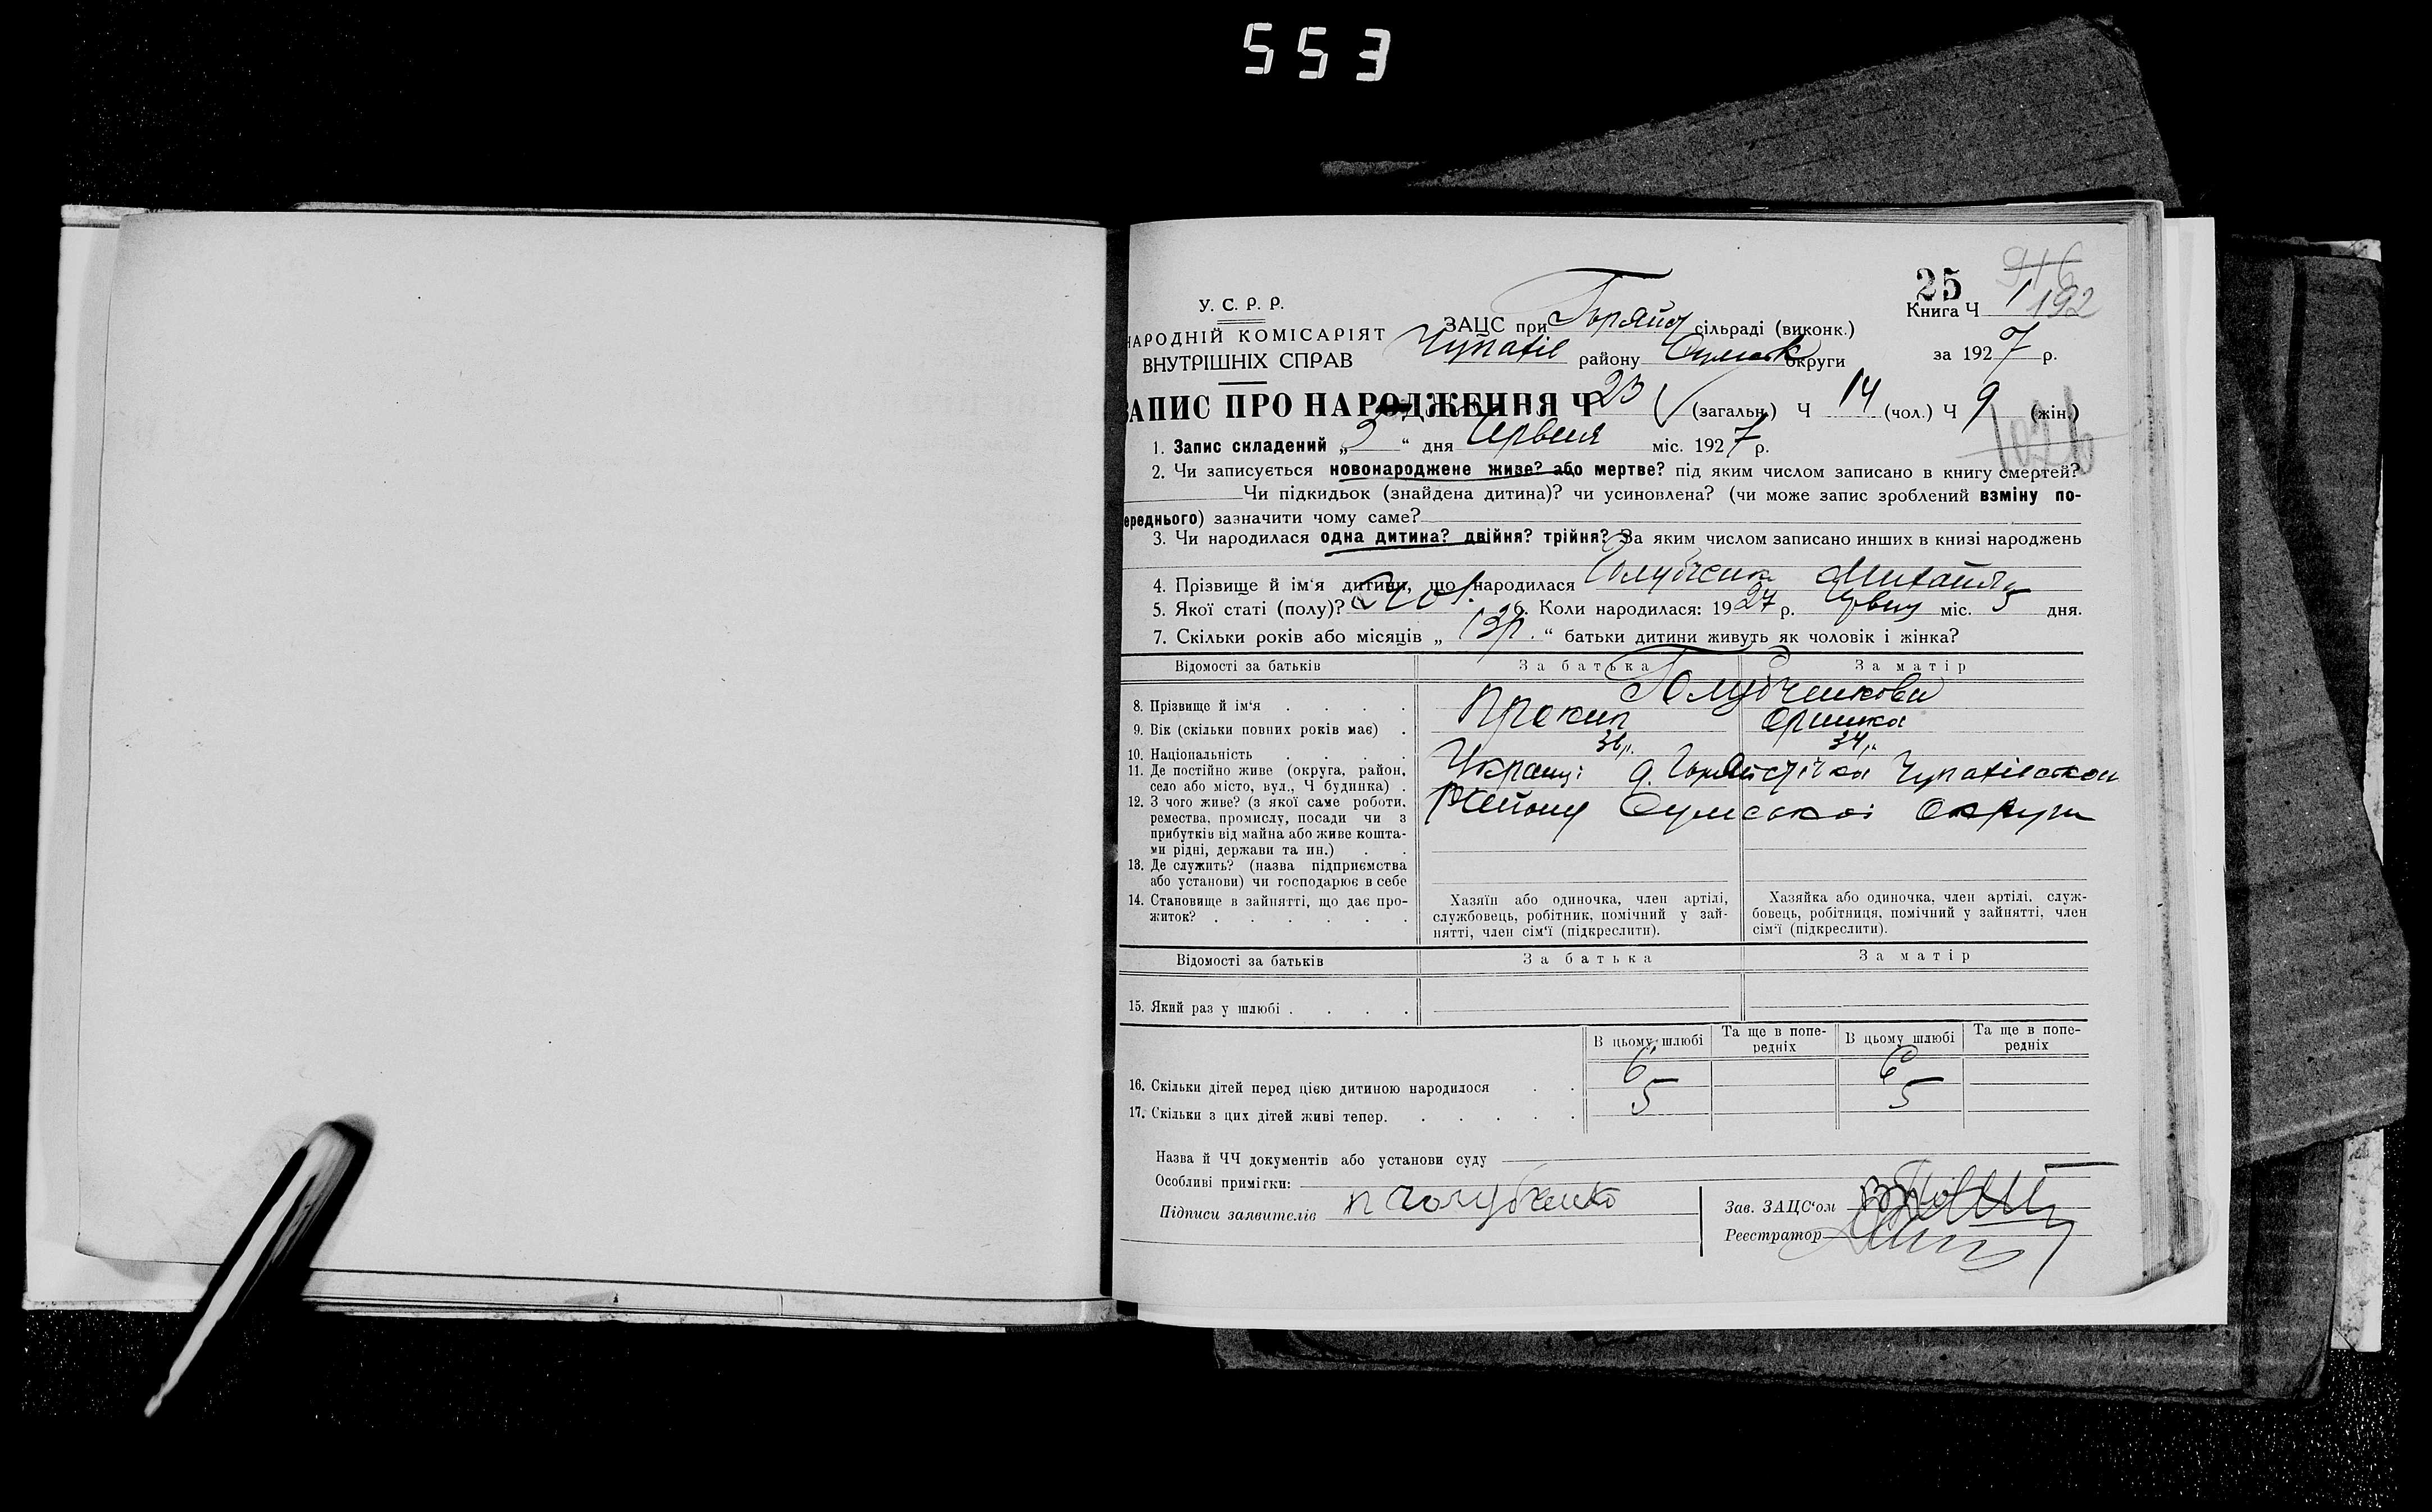 553
25 916
У. С. Р. Р.
НАРОДНІЙ КОМІСАРІЯТ
ВНУТРІШНІХ СПРАВ
ЗАЦС при сільраді (виконк.)
району Сумськ округи
Книга Ч 1 192
за 1927 р.
ЗАПИС ПРО НАРОДЖЕННЯ Ч 23 (загальн.) Ч 14 (чол.) Ч 9 (жін.)
1026
1. Запис складений „ “ дня Червня міс. 1927 р.
2. Чи записується новонароджене живе? або мертве? під яким числом записано в книгу смертей?
Чи підкидьок (знайдена дитина)? чи усиновлена? (чи може запис зроблений взміну по-
ереднього) зазначити чому саме?
3. Чи народилася одна дитина? двійня? трійня? За яким числом записано инших в книзі народжень
4. Прізвище й ім‘я дитини, що народилася Голубченко Михайло
5. Якої статі (полу)? чол. 6. Коли народилася: 1927 р. Червня міс. 5 дня.
7. Скільки років або місяців „ 13 р. “ батьки дитини живуть як чоловік і жінка?
Відомості за батьків За батька За матір
8. Прізвище й ім‘я Голубченкови
Прокип Оришка
9. Вік (скільки повних років має) 36 р. 34 р.
10. Національність Українці
11. Де постійно живе (округа, район,
село або місто, вул., Ч будинка)
Району Сумської Округи
12. З чого живе? (з якої саме роботи,
ремества, промислу, посади чи з
прибутків від майна або живе кошта-
ми рідні, держави та ин.)
13. Де служить? (назва підприємства
або установи) чи господарює в себе
14. Становище в зайнятті, що дає про-
житок?
Хазяїн або одиночка, член артілі,
службовець, робітник, помічний у зай-
нятті, член сім‘ї (підкреслити).
Хазяйка або одиночка, член артілі, служ-
бовець, робітниця, помічний у зайнятті, член
сім‘ї (підкреслити).
Відомості за батьків За батька За матір
15. Який раз у шлюбі
В цьому шлюбі Та ще в попе-редніх В цьому шлюбі Та ще в попе-редніх
16. Скільки дітей перед цією дитиною народилося 6 6
17. Скільки з цих дітей живі тепер. 5 5
Назва й ЧЧ документів або установи суду
Особливі примітки:
Підписи заявителів П Голубченко
Зав. ЗАЦС‘ом
Реєстратор